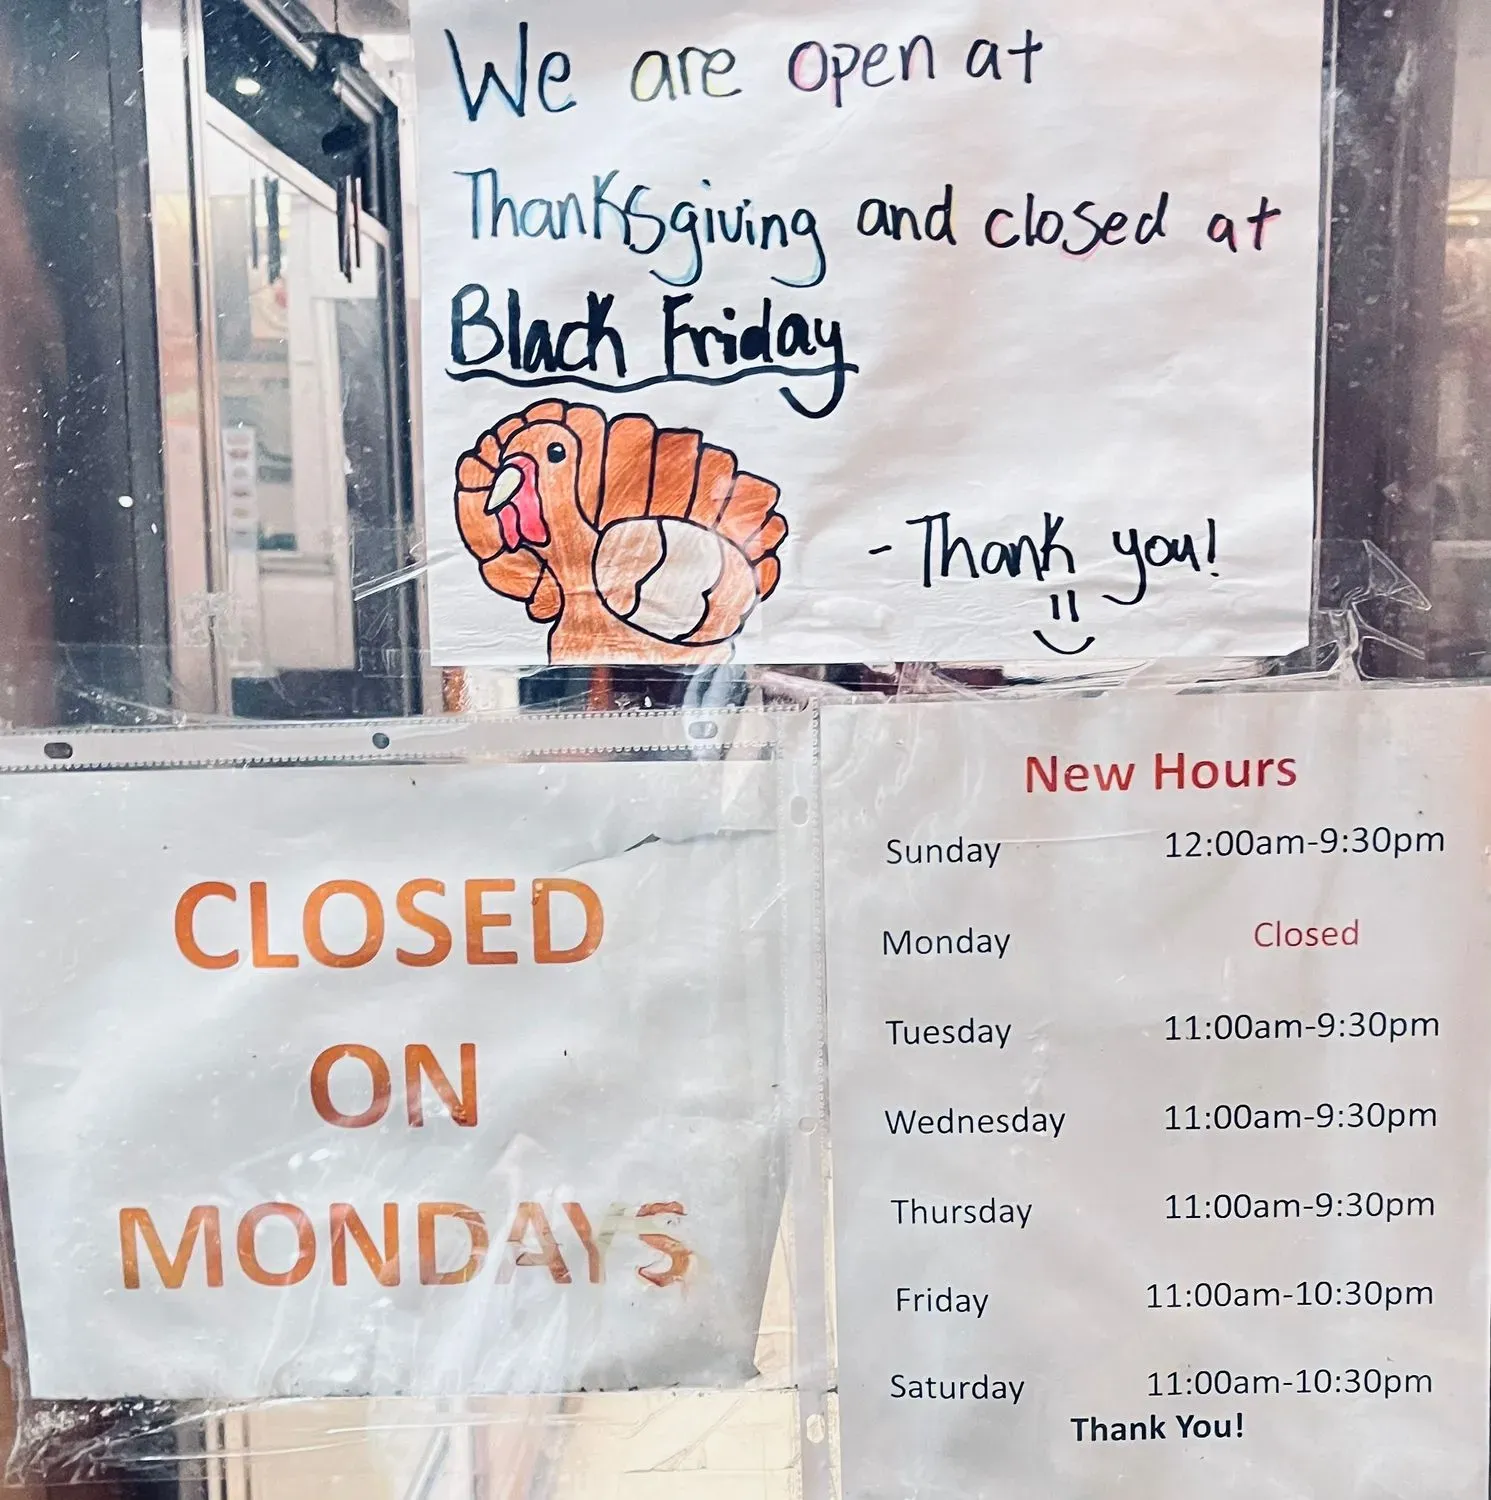 We are open at
Thanksgiving and closed at
Black Friday
- Thank you!
CLOSED
ON
MONDAYS
New Hours
Sunday 12:00am-9:30pm
Monday Closed
Tuesday 11:00am-9:30pm
Wednesday 11:00am-9:30pm
Thursday 11:00am-9:30pm
Friday 11:00am-10:30pm
Saturday 11:00am-10:30pm
Thank You!